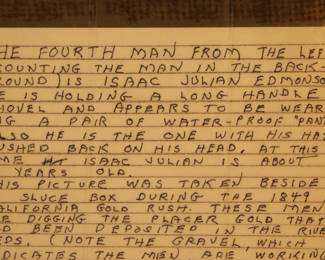 HE FOURTH MAN FROM THE LEF
COUNTING THE MAN IN THE BACK-
ROUND) IS ISAAC JULIAN EDMONSO
E IS HOLDING A LONG HANDLE
HOVEL AND APPEARS TO BE WEAR-
NG A PAIR OF WATER-PROOF "PANT
LSO HE IS THE ONE WITH HIS HA
USHED BACK ON HIS HEAD. AT THIS
ME ISAAC JULIAN IS ABOUT
YEARS OLD.
HIS PICTURE WAS TAKEN BESIDE
SLUCE BOX DURING THE 1849
ALIFORNIA GOLD RUSH. THESE MEN
RE DIGGING THE PLACER GOLD THAT
AD BEEN DEPOSITED IN THE RIVE
EDS. (NOTE THE GRAVEL, WHICH
DICATES THE MEN ARE WORKING